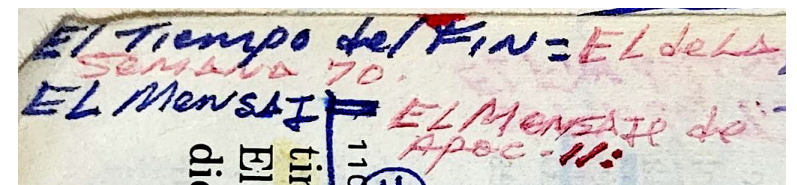 El Tiempo del FIN = EL de LA
SEMANA 70.
EL MENSAJE = EL MENSAJE de
APOC - 11:
110
tin
El
dic